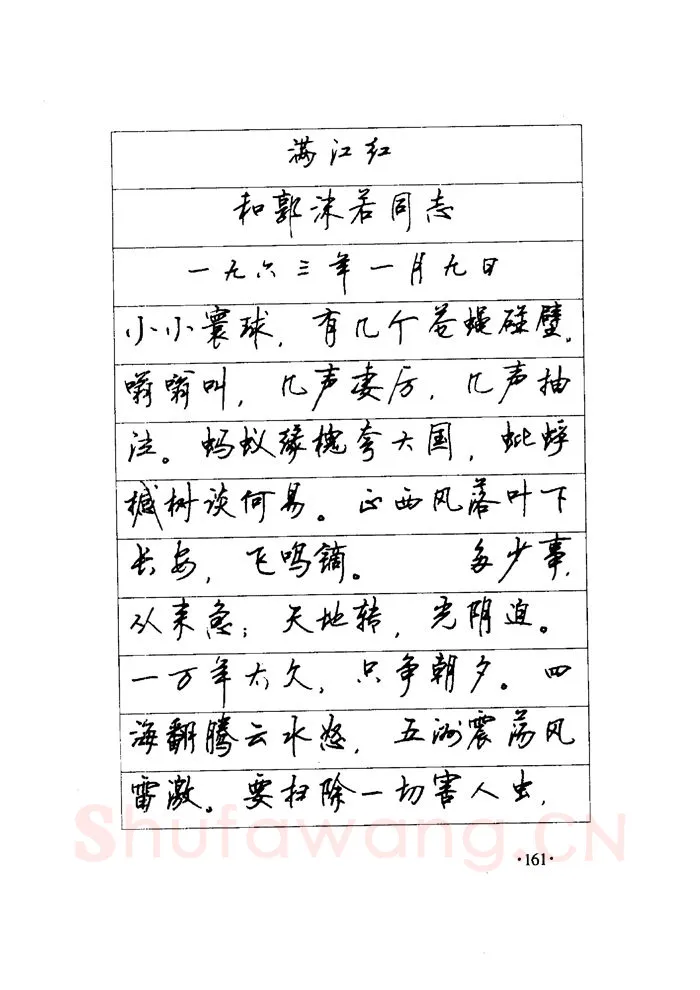 满江红
和郭沫若同志
一九六三年一月九日
小小寰球，有几个苍蝇碰壁。
嗡嗡叫，几声凄厉，几声抽
泣。蚂蚁缘槐夸大国，蚍蜉
撼树谈何易。正西风落叶下
长安，飞鸣镝。 多少事，
从来急；天地转，光阴迫。
一万年太久，只争朝夕。四
海翻腾云水怒，五洲震荡风
雷激。要扫除一切害人虫，
Shufawang.CN
·161·